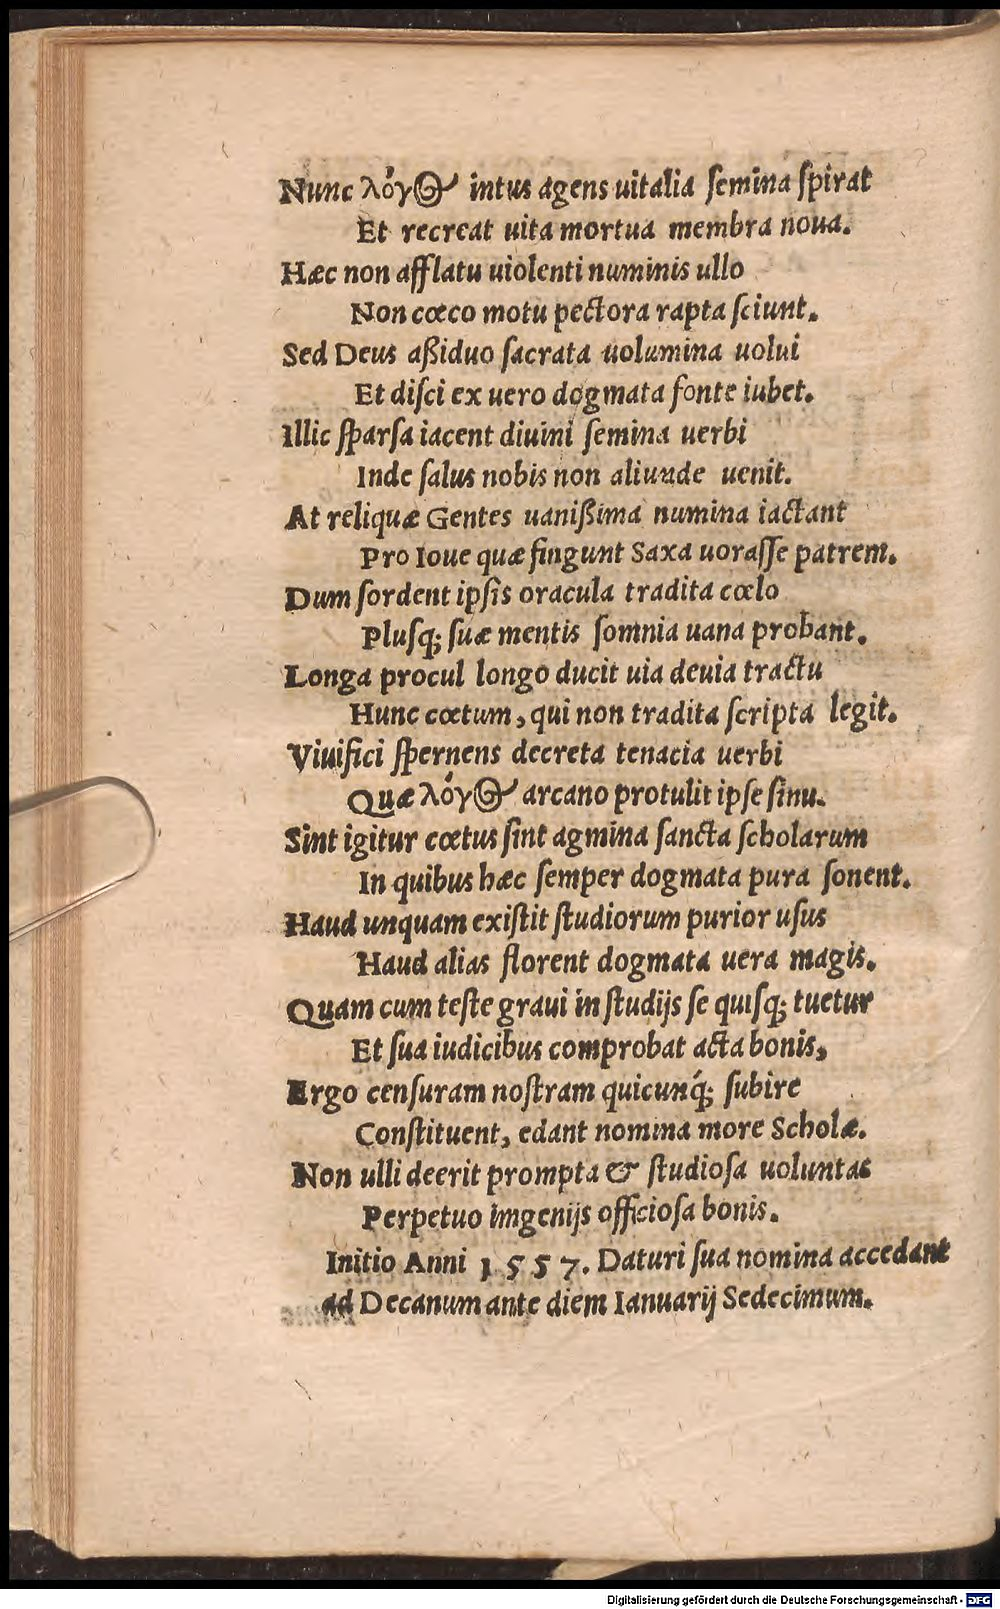 Nunc λόγος intus agens uitalia ſemina ſpirat
Et recreat uita mortua membra noua.
Hæc non afflatu uiolenti numinis ullo
Non cœco motu pectora rapta ſciunt.
Sed Deus aßiduo ſacrata uolumina uolui
Et diſci ex uero dogmata fonte iubet.
Illic ſparſa iacent diuini ſemina uerbi
Inde ſalus nobis non aliunde uenit.
At reliquæ Gentes uanißima numina iactant
Pro Ioue quæ fingunt Saxa uoraſſe patrem.
Dum ſordent ipſis oracula tradita cœlo
Pluſq; ſuæ mentis ſomnia uana probant.
Longa procul longo ducit uia deuia tractu
Hunc cœtum, qui non tradita ſcripta legit.
Viuifici ſpernens decreta tenacia uerbi
Quæ λόγος arcano protulit ipſe ſinu.
Sint igitur cœtus ſint agmina ſancta ſcholarum
In quibus hæc ſemper dogmata pura ſonent.
Haud unquam exiſtit ſtudiorum purior uſus
Haud alias florent dogmata uera magis.
Quam cum teſte graui in ſtudijs ſe quiſq; tuetur
Et ſua iudicibus comprobat acta bonis,
Ergo cenſuram noſtram quicunq́; ſubire
Conſtituent, edant nomina more Scholæ.
Non ulli deerit prompta & ſtudioſa uoluntas
Perpetuo imgenijs officioſa bonis.
Initio Anni 1557. Daturi ſua nomina accedant
ad Decanum ante diem Ianuarij Sedecimum.
Digitalisierung gefördert durch die Deutsche Forschungsgemeinschaft - DFG